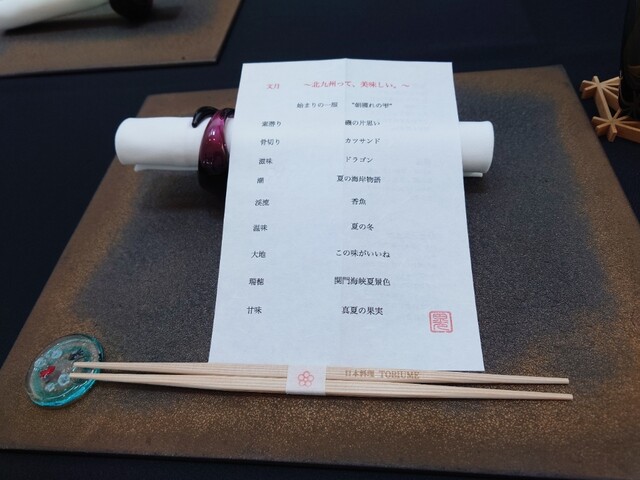 文月 ～北九州って、美味しい。～
始まりの一服 "朝獲れの雫"
素潜り 磯の片思い
骨切り カツサンド
滋味 ドラゴン
潮 夏の海岸物語
渓流 香魚
温味 夏の冬
大地 この味がいいね
瑞穂 関門海峡夏景色
甘味 真夏の果実
日本料理 TOBIUME